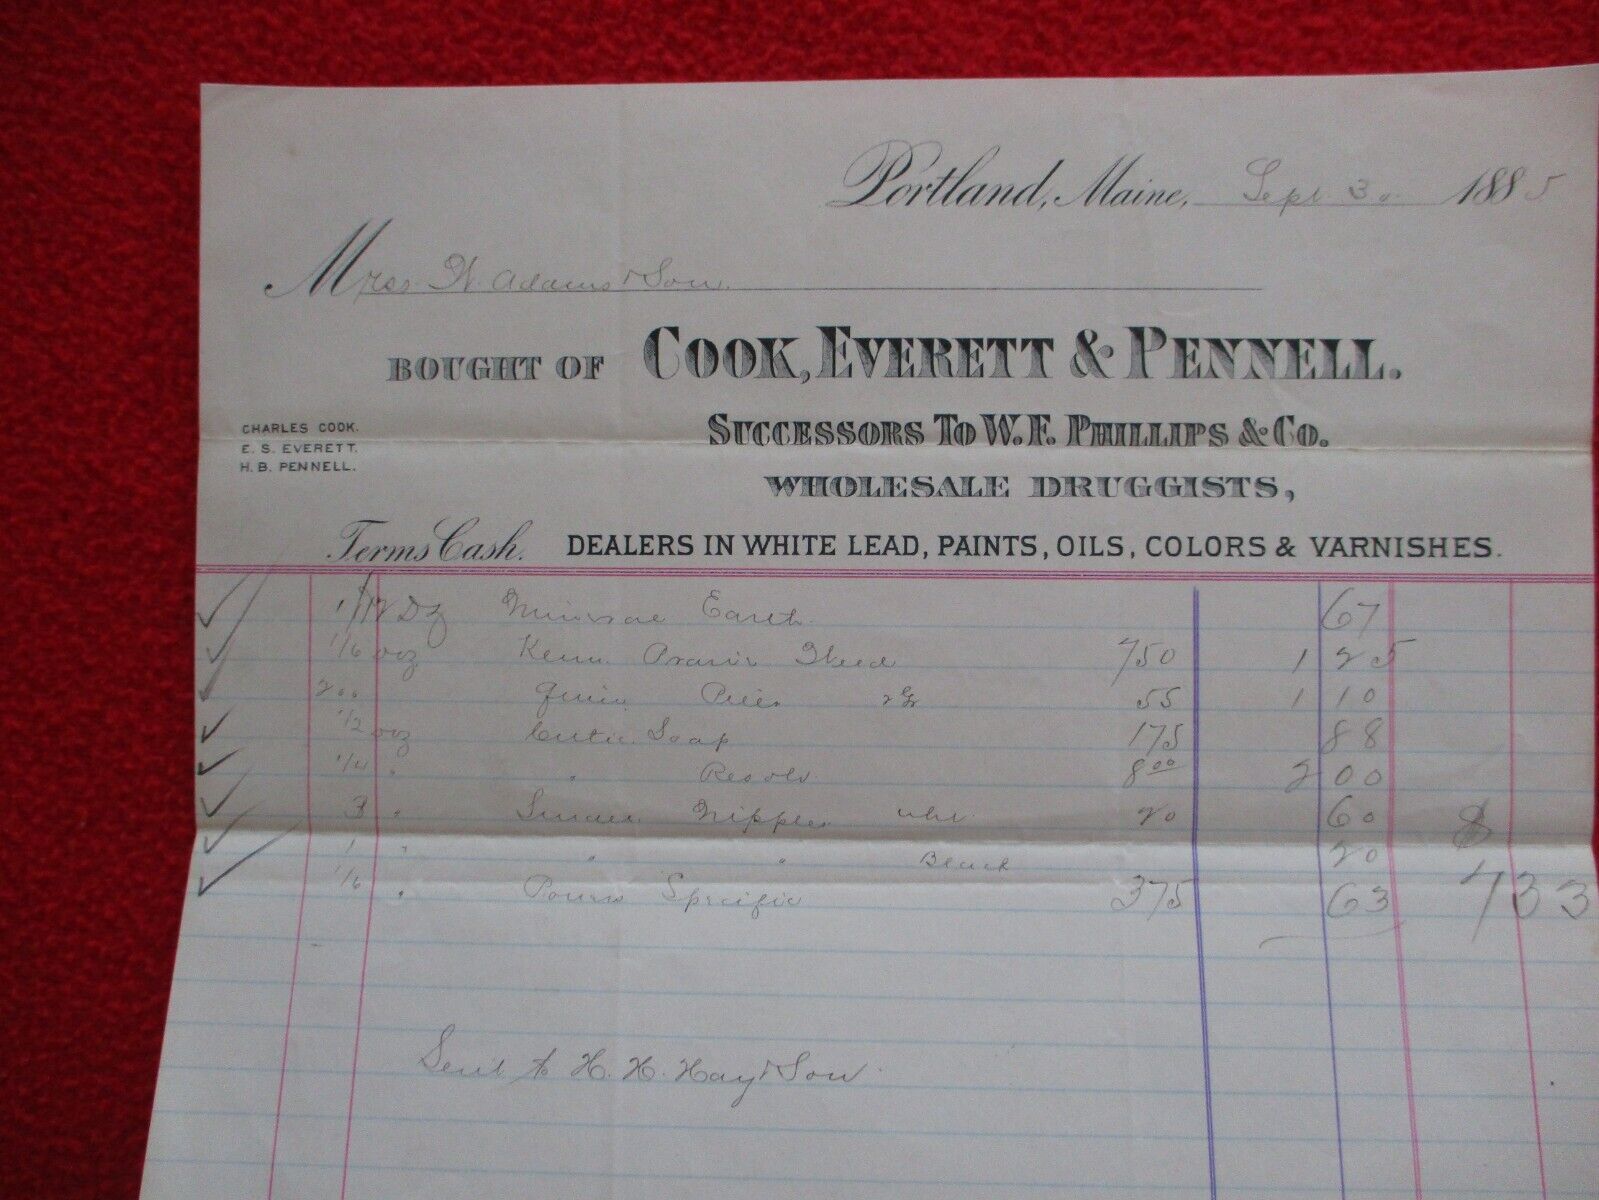 Portland, Maine, Sept 30 1885
Mess W. Adams & Son.
BOUGHT OF COOK, EVERETT & PENNELL.
SUCCESSORS TO W. F. PHILLIPS & CO.
CHARLES COOK.
E. S. EVERETT.
H. B. PENNELL.
WHOLESALE DRUGGISTS,
Terms Cash. DEALERS IN WHITE LEAD, PAINTS, OILS, COLORS & VARNISHES.
1/12 Dz Earth 67
1/6 doz 750 1 25
200 2 gr 55 1 10
1/2 doz Cutic. Soap 175 88
1/4 " " Resolv 8 00 2 00
3 " Nipples wht 20 60
1 " " " Black 20 $
1/6 " Specific 375 63 7 33
Sent to H. H. Hay & Son